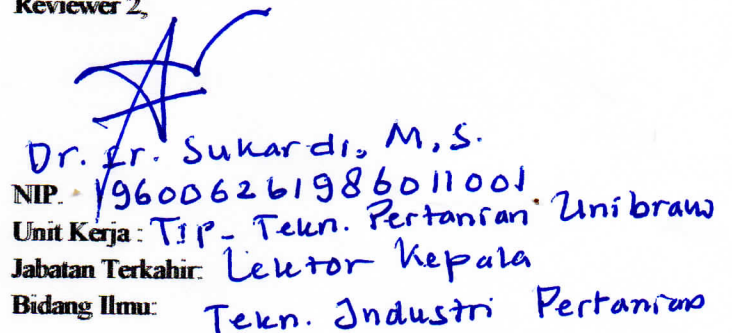 Reviewer 2,
Dr. Ir. Sukardi, M.S.
NIP. 196006261986011001
Unit Kerja : TIP - Tekn. Pertanian Unibraw
Jabatan Terkahir: Lektor Kepala
Bidang Ilmu: Tekn. Industri Pertanian